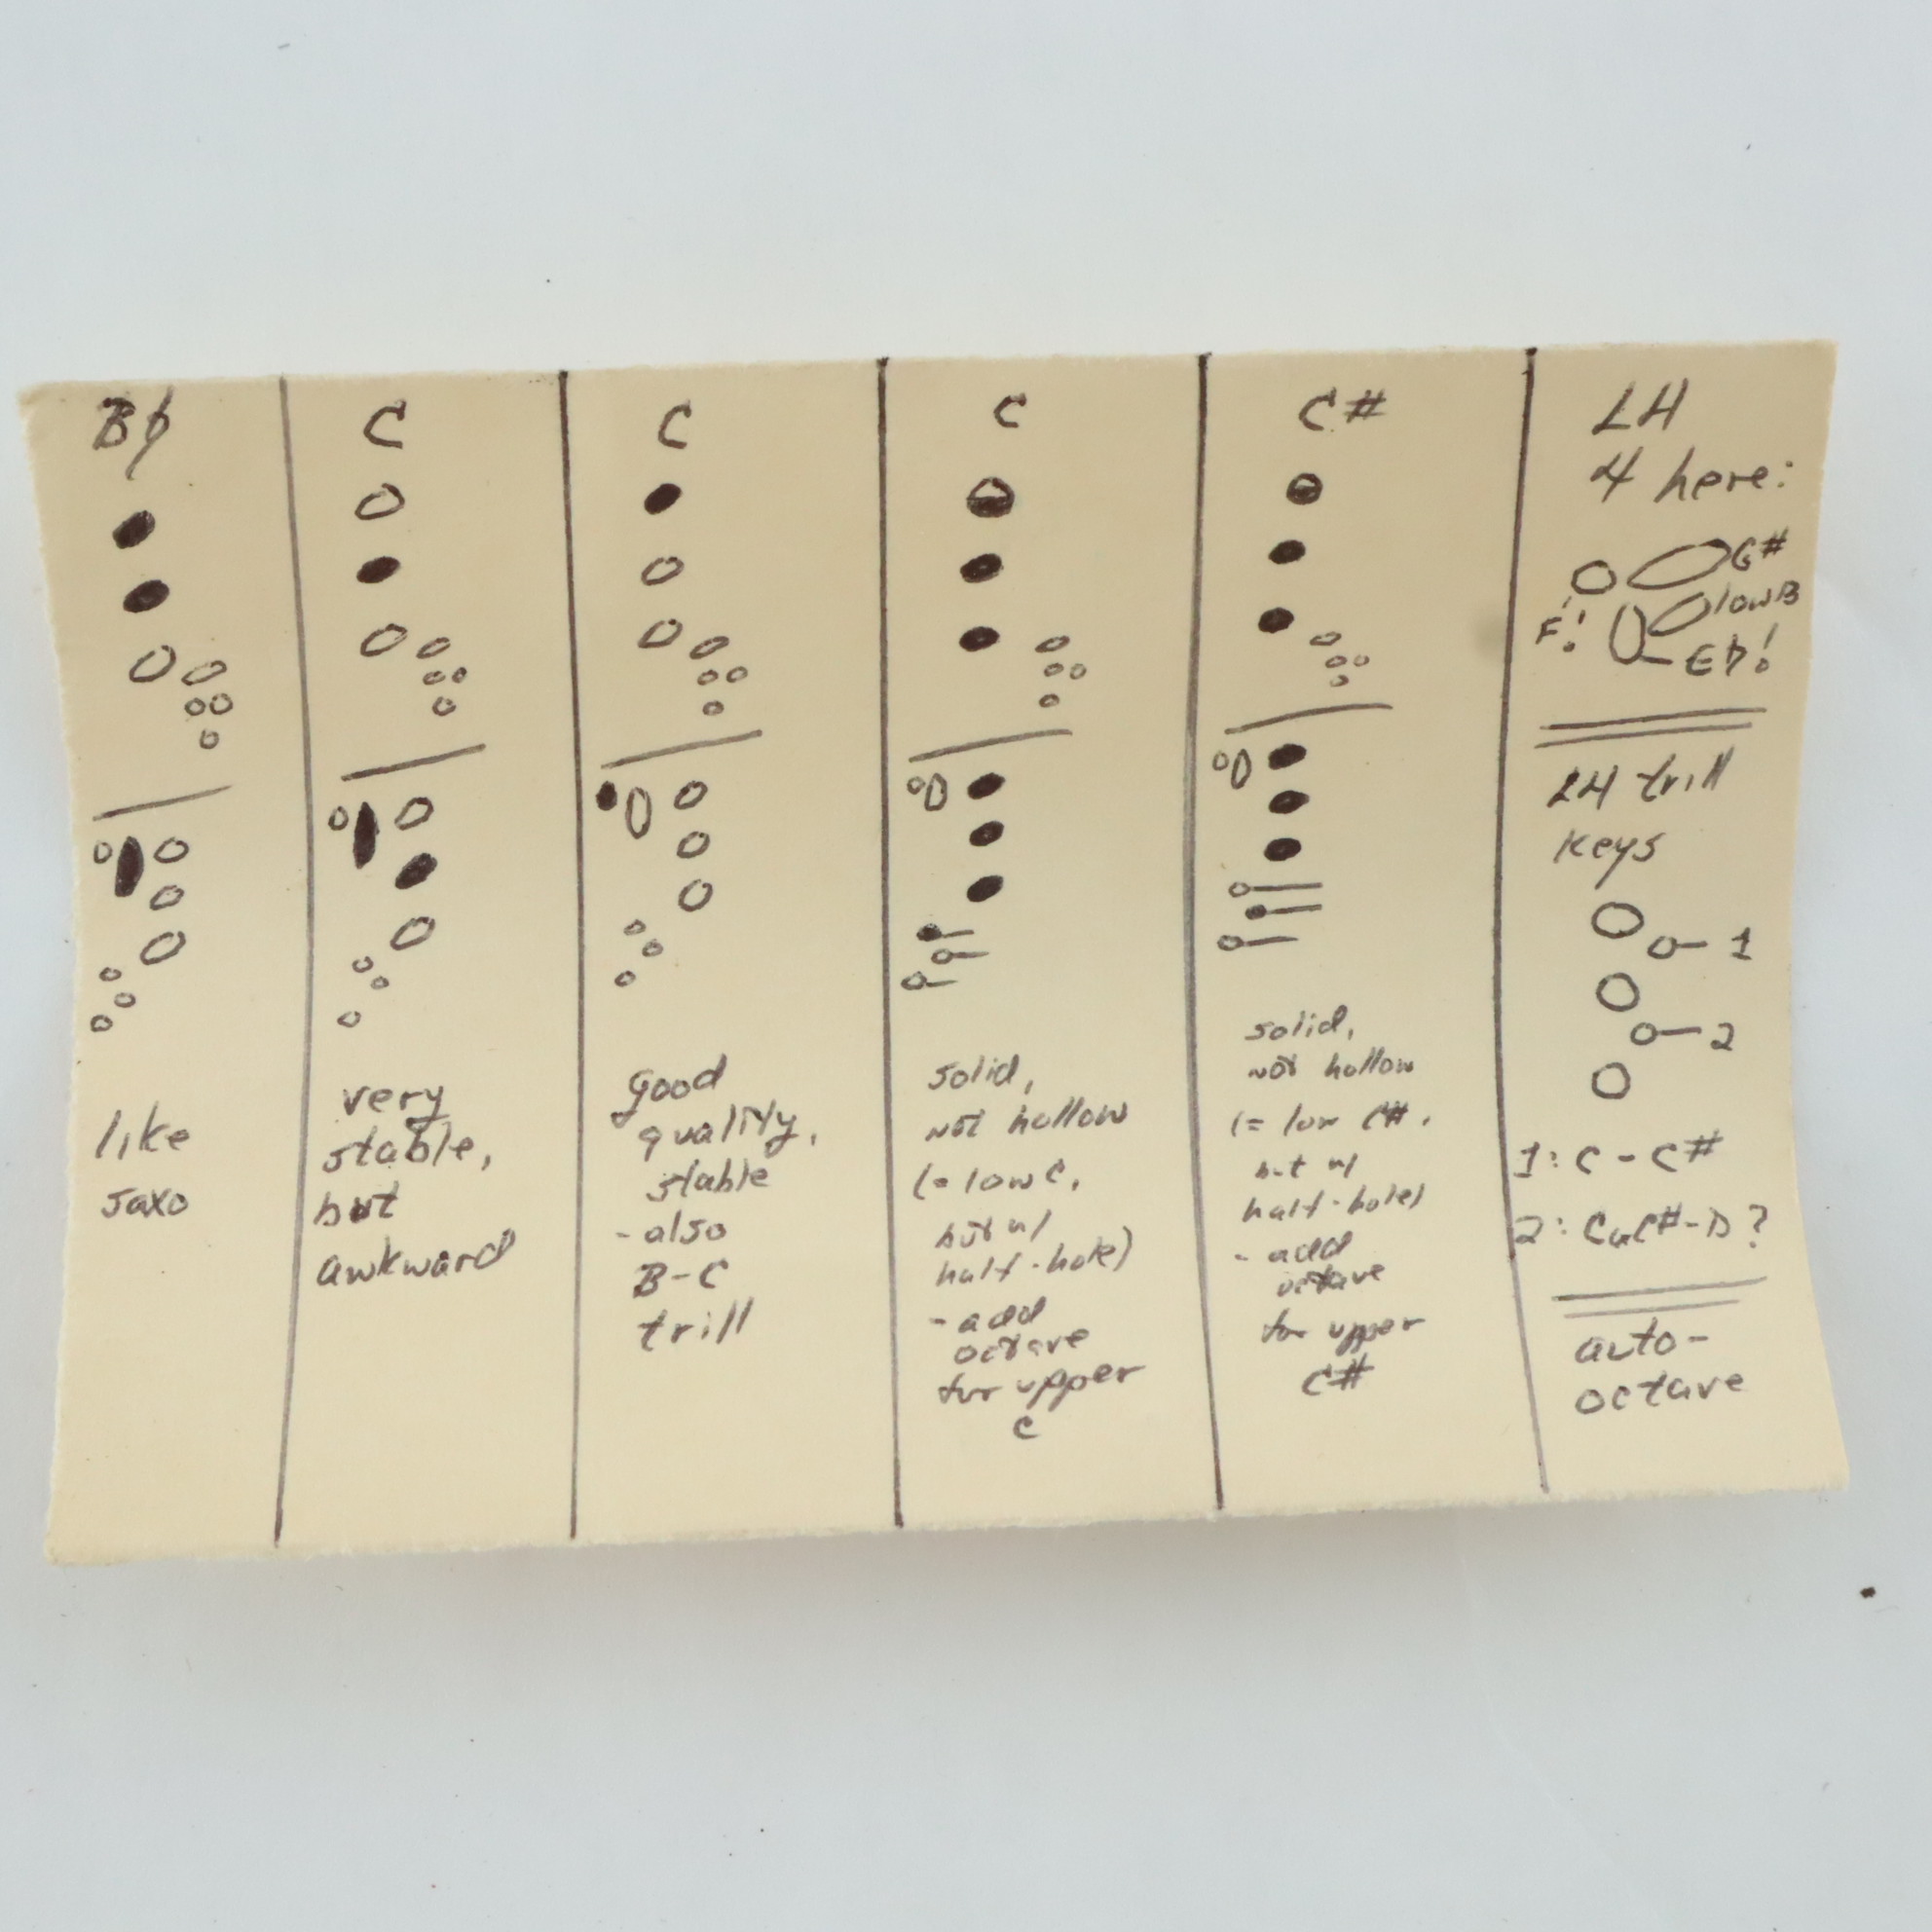 B♭
like
saxo
C
very
stable,
but
awkward
C
good
quality,
stable
- also
B-C
trill
C
solid,
not hollow
(= low C,
but w/
half-hole)
- add
octave
for upper
C
C#
solid,
not hollow
(= low C#,
but w/
half-hole)
- add
octave
for upper
C#
LH
4 here:
G#
low B
F!
E♭!
LH trill
keys
1
2
1: C - C#
2: C C#-D?
auto-
octave